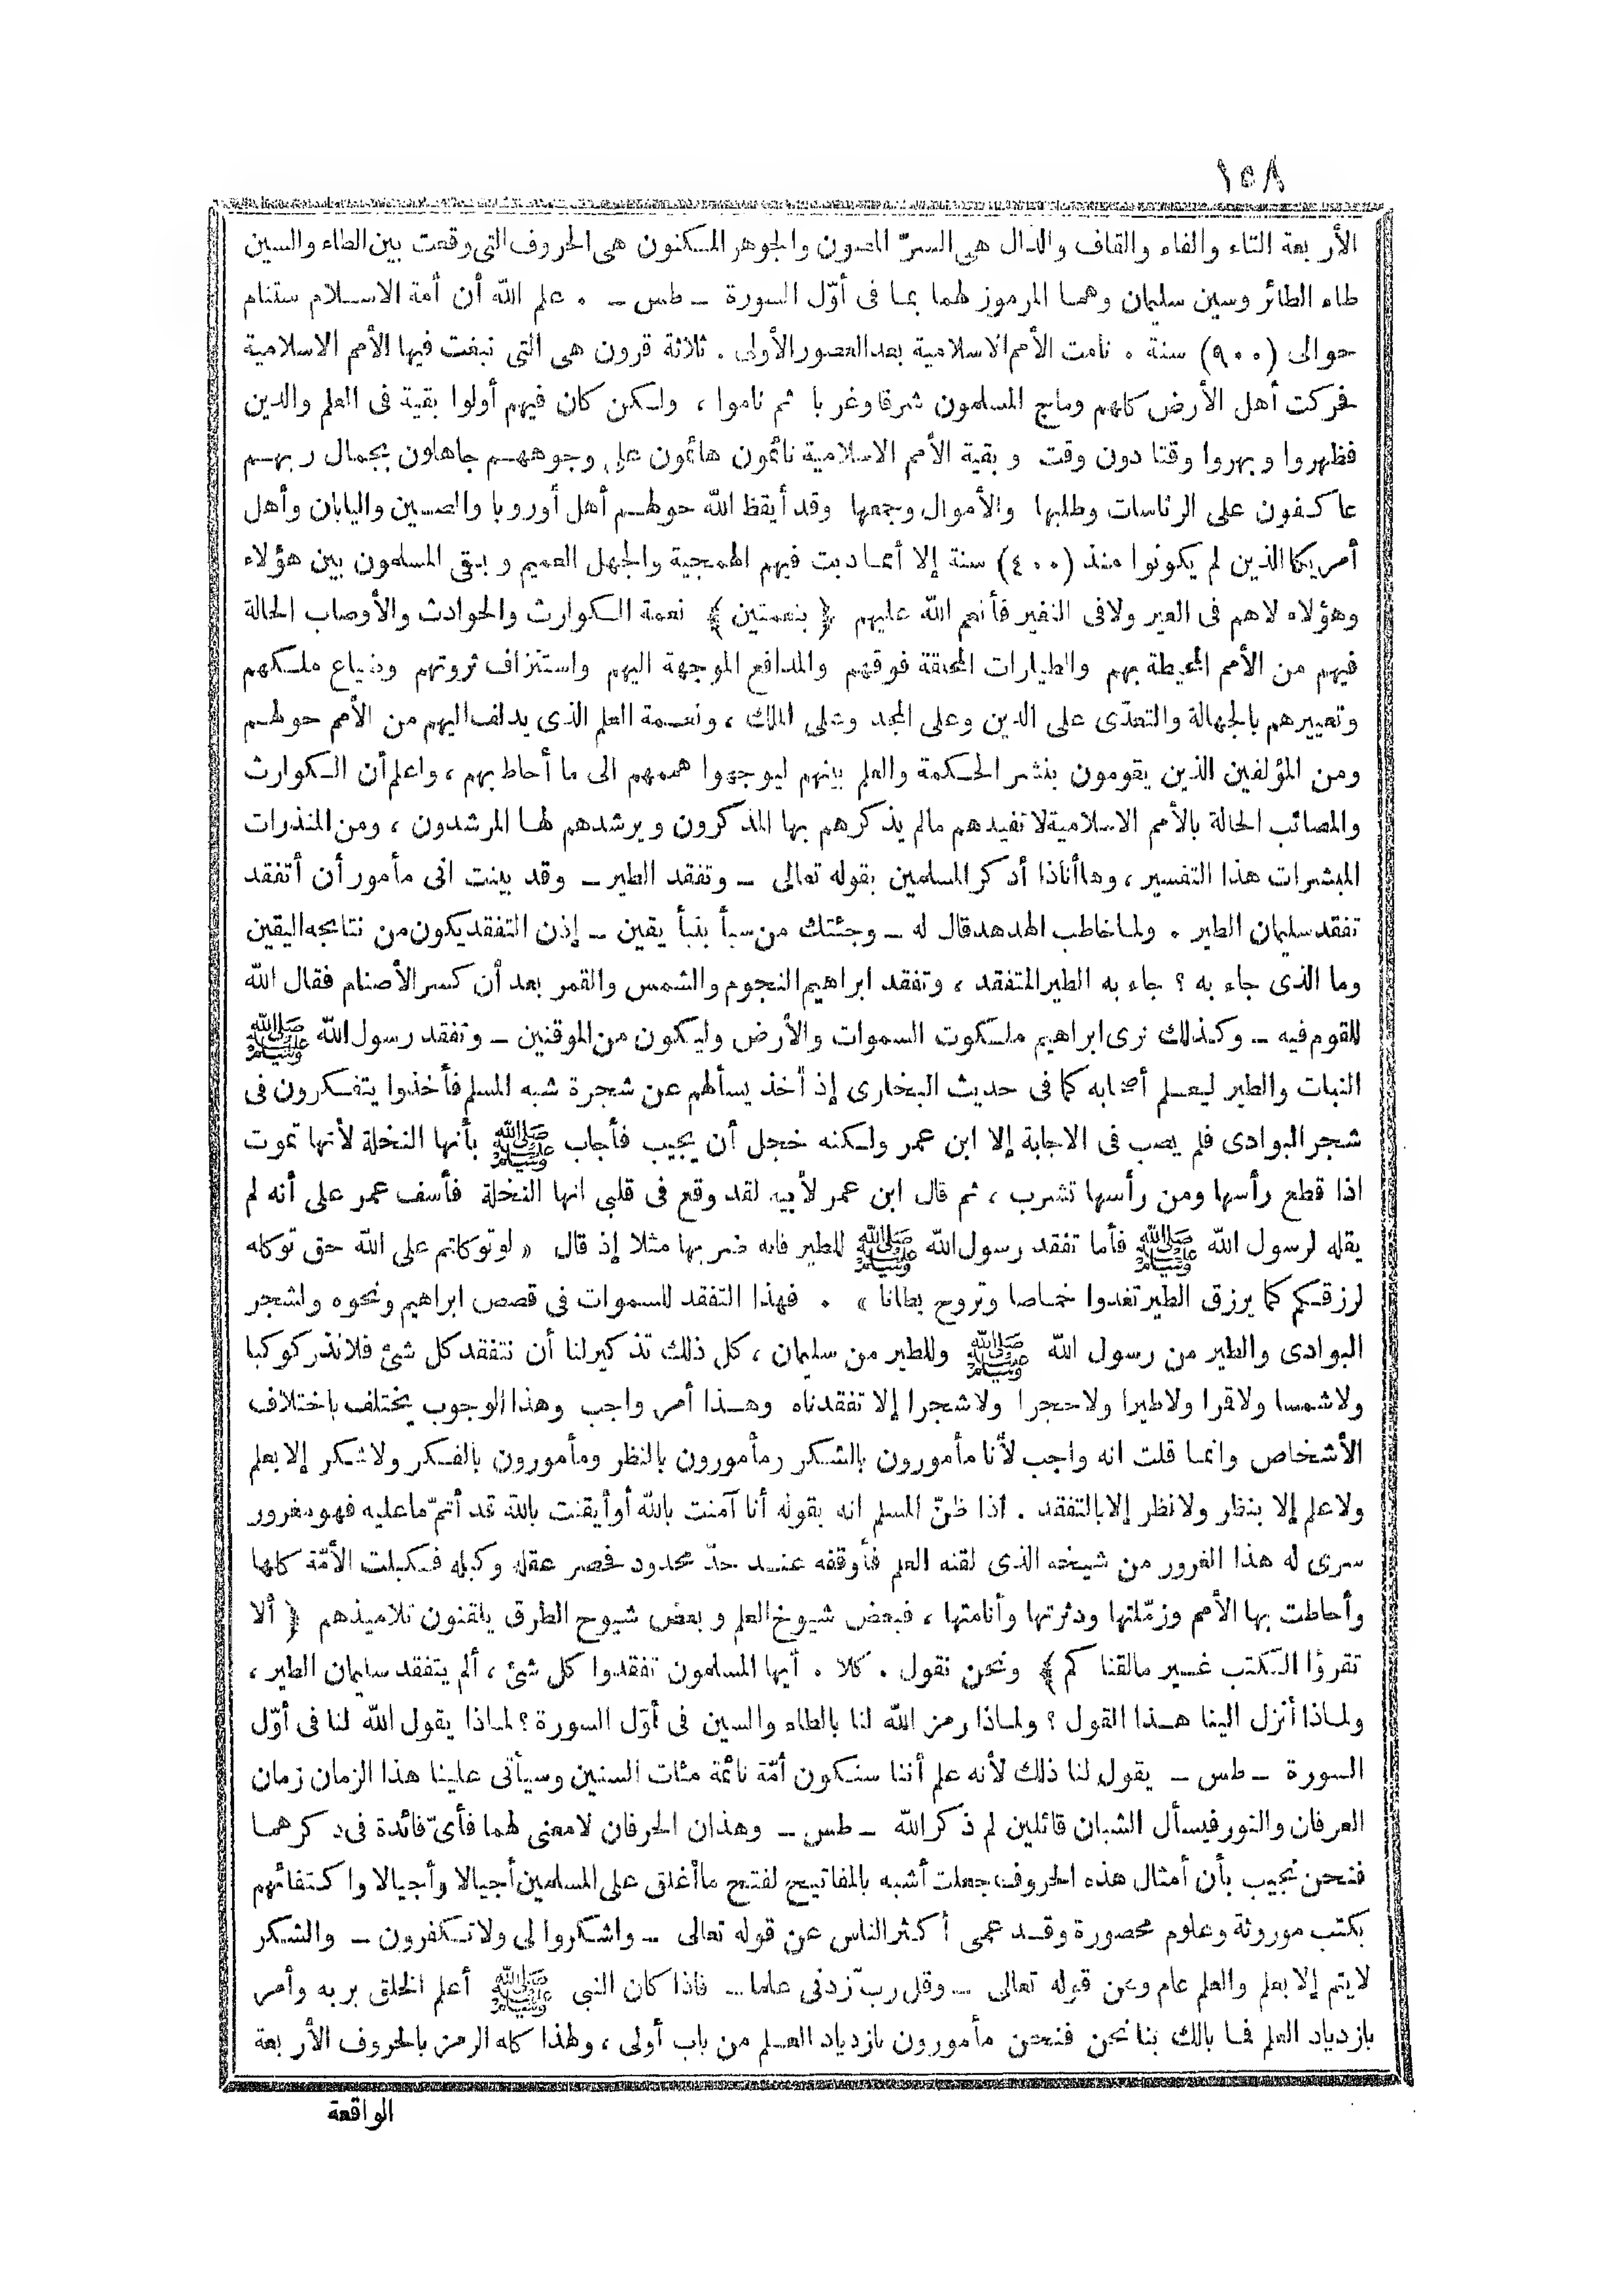 ١٥٨
الأربعة التاء والفاء والقاف والدال هي السرّ المصون والجوهر المكنون هى الحروف التى وقعت بين الطاء والسين
طاء الطائر وسين سليمان وهما المرموز لهما بما فى أوّل السورة ــ طس ــ . علم الله أن أمة الاسلام ستنام
حوالى (٩٠٠) سنة . نامت الأمم الاسلامية بعد العصور الأولى . ثلاثة قرون هى التى نبغت فيها الأمم الاسلامية
فحركت أهل الأرض كلهم وماج المسلمون شرقا وغربا ثم ناموا ، ولكن كان فيهم أولوا بقية فى العلم والدين
فظهروا وبهروا وقتا دون وقت وبقية الأمم الاسلامية نائمون هائمون على وجوههم جاهلون بجمال ربهم
عاكفون على الرئاسات وطلبها والأموال وجمعها وقد أيقظ الله حولهم أهل أوروبا والصين واليابان وأهل
أمريكا الذين لم يكونوا منذ (٤٠٠) سنة إلا أمما دبت فيهم الهمجية والجهل العميم وبقى المسلمون بين هؤلاء
وهؤلاء لاهم فى العير ولافى النفير فأنعم الله عليهم ﴿ بنعمتين ﴾ نعمة الكوارث والحوادث والأوصاب الحالة
فيهم من الأمم المحيطة بهم والطيارات المحلقة فوقهم والمدافع الموجهة اليهم واستنزاف ثروتهم وضياع ملكهم
وتعييرهم بالجهالة والتعدّى على الدين وعلى المجد وعلى الملك ، ونعمة العلم الذى يدلف اليهم من الأمم حولهم
ومن المؤلفين الذين يقومون بنشر الحكمة والعلم بينهم ليوجهوا هممهم الى ما أحاط بهم ، واعلم أن الكوارث
والمصائب الحالة بالأمم الاسلامية لاتفيدهم مالم يذكرهم بها المذكرون ويرشدهم لها المرشدون ، ومن المنذرات
المبشرات هذا التفسير ، وها أناذا أذكر المسلمين بقوله تعالى ــ وتفقد الطير ــ وقد بينت انى مأمور أن أتفقد
تفقد سليمان الطير . ولما خاطب الهدهد قال له ــ وجئتك من سبأ بنبأ يقين ــ إذن التفقد يكون من نتائجه اليقين
وما الذى جاء به ؟ جاء به الطير المتفقد ، وتفقد ابراهيم النجوم والشمس والقمر بعد أن كسر الأصنام فقال الله
للقوم فيه ــ وكذلك نرى ابراهيم ملكوت السموات والأرض وليكون من الموقنين ــ وتفقد رسول الله ﷺ
النبات والطير ليعلم أصحابه كما فى حديث البخارى إذ أخذ يسألهم عن شجرة شبه المسلم فأخذوا يتفكرون فى
شجر البوادى فلم يصب فى الاجابة إلا ابن عمر ولكنه خجل أن يجيب فأجاب ﷺ بأنها النخلة لأنها تموت
اذا قطع رأسها ومن رأسها تشرب ، ثم قال ابن عمر لأبيه لقد وقع فى قلبى انها النخلة فأسف عمر على أنه لم
يقله لرسول الله ﷺ فأما تفقد رسول الله ﷺ للطير فانه ضرب بها مثلا إذ قال « لو توكلتم على الله حق توكله
لرزقكم كما يرزق الطير تغدوا خماصا وتروح بطانا » . فهذا التفقد للسموات فى قصص ابراهيم ونحوه ولشجر
البوادى والطير من رسول الله ﷺ وللطير من سليمان ، كل ذلك تذكير لنا أن نتفقد كل شئ فلانذر كوكبا
ولاشمسا ولاقرا ولاطيرا ولاحجرا ولاشجرا إلا تفقدناه وهذا أمر واجب وهذا الوجوب يختلف باختلاف
الأشخاص وانما قلت انه واجب لأنا مأمورون بالشكر ومأمورون بالنظر ومأمورون بالفكر ولاشكر إلا بعلم
ولاعلم إلا بنظر ولانظر إلا بالتفقد . اذا ظنّ المسلم انه بقوله أنا آمنت بالله أوأيقنت بالله قد أتمّ ماعليه فهو مغرور
سرى له هذا الغرور من شيخه الذى لقنه العلم فأوقفه عند حدّ محدود فحصر عقله وكبله فكبلت الأمّة كلها
وأحاطت بها الأمم وزمّلتها ودثرتها وأنامتها ، فبعض شيوخ العلم وبعض شيوح الطرق يلقنون تلاميذهم ﴿ ألا
تقرؤا الكتب غير مالقنا كم ﴾ ونحن نقول . كلا . أيها المسلمون تفقدوا كل شئ ، ألم يتفقد سليمان الطير ،
ولماذا أنزل الينا هذا القول ؟ ولماذا رمز الله لنا بالطاء والسين فى أوّل السورة ؟ لماذا يقول الله لنا فى أوّل
السورة ــ طس ــ يقول لنا ذلك لأنه علم أننا سنكون أمّة نائمة مئات السنين وسيأتى علينا هذا الزمان زمان
العرفان والنور فيسأل الشبان قائلين لم ذكر الله ــ طس ــ وهذان الحرفان لامعنى لهما فأىّ فائدة فى ذكرهما
فنحن نجيب بأن أمثال هذه الحروف جعلت أشبه بالمفاتيح لفتح ماأغلق على المسلمين أجيالا وأجيالا واكتفائهم
بكتب موروثة وعلوم محصورة وقد عمى أكثر الناس عن قوله تعالى ــ واشكروا لى ولاتكفرون ــ والشكر
لايتم إلا بعلم والعلم عام وعن قوله تعالى ــ وقل ربّ زدنى علما ــ فاذا كان النبى ﷺ أعلم الخلق بربه وأمر
بازدياد العلم فما بالك بنا نحن فنحن مأمورون بازدياد العلم من باب أولى ، ولهذا كله الرمز بالحروف الأربعة
الواقعة